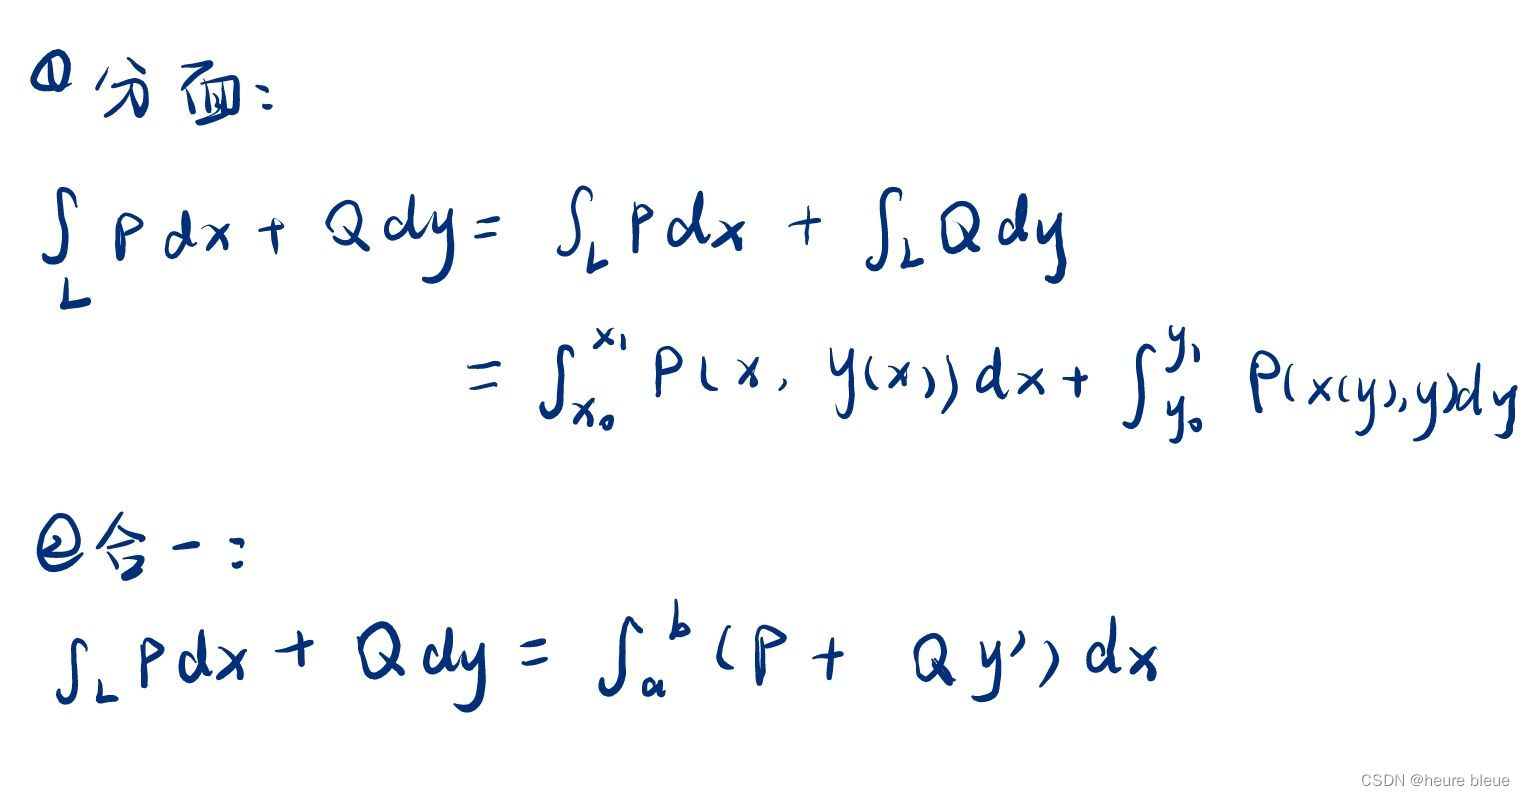 ① 分面:
∫_L P dx + Q dy = ∫_L P dx + ∫_L Q dy
= ∫_{x₀}^{x₁} P(x, y(x)) dx + ∫_{y₀}^{y₁} P(x(y), y) dy
② 合一:
∫_L P dx + Q dy = ∫_a^b (P + Q y') dx
CSDN @heure bleue